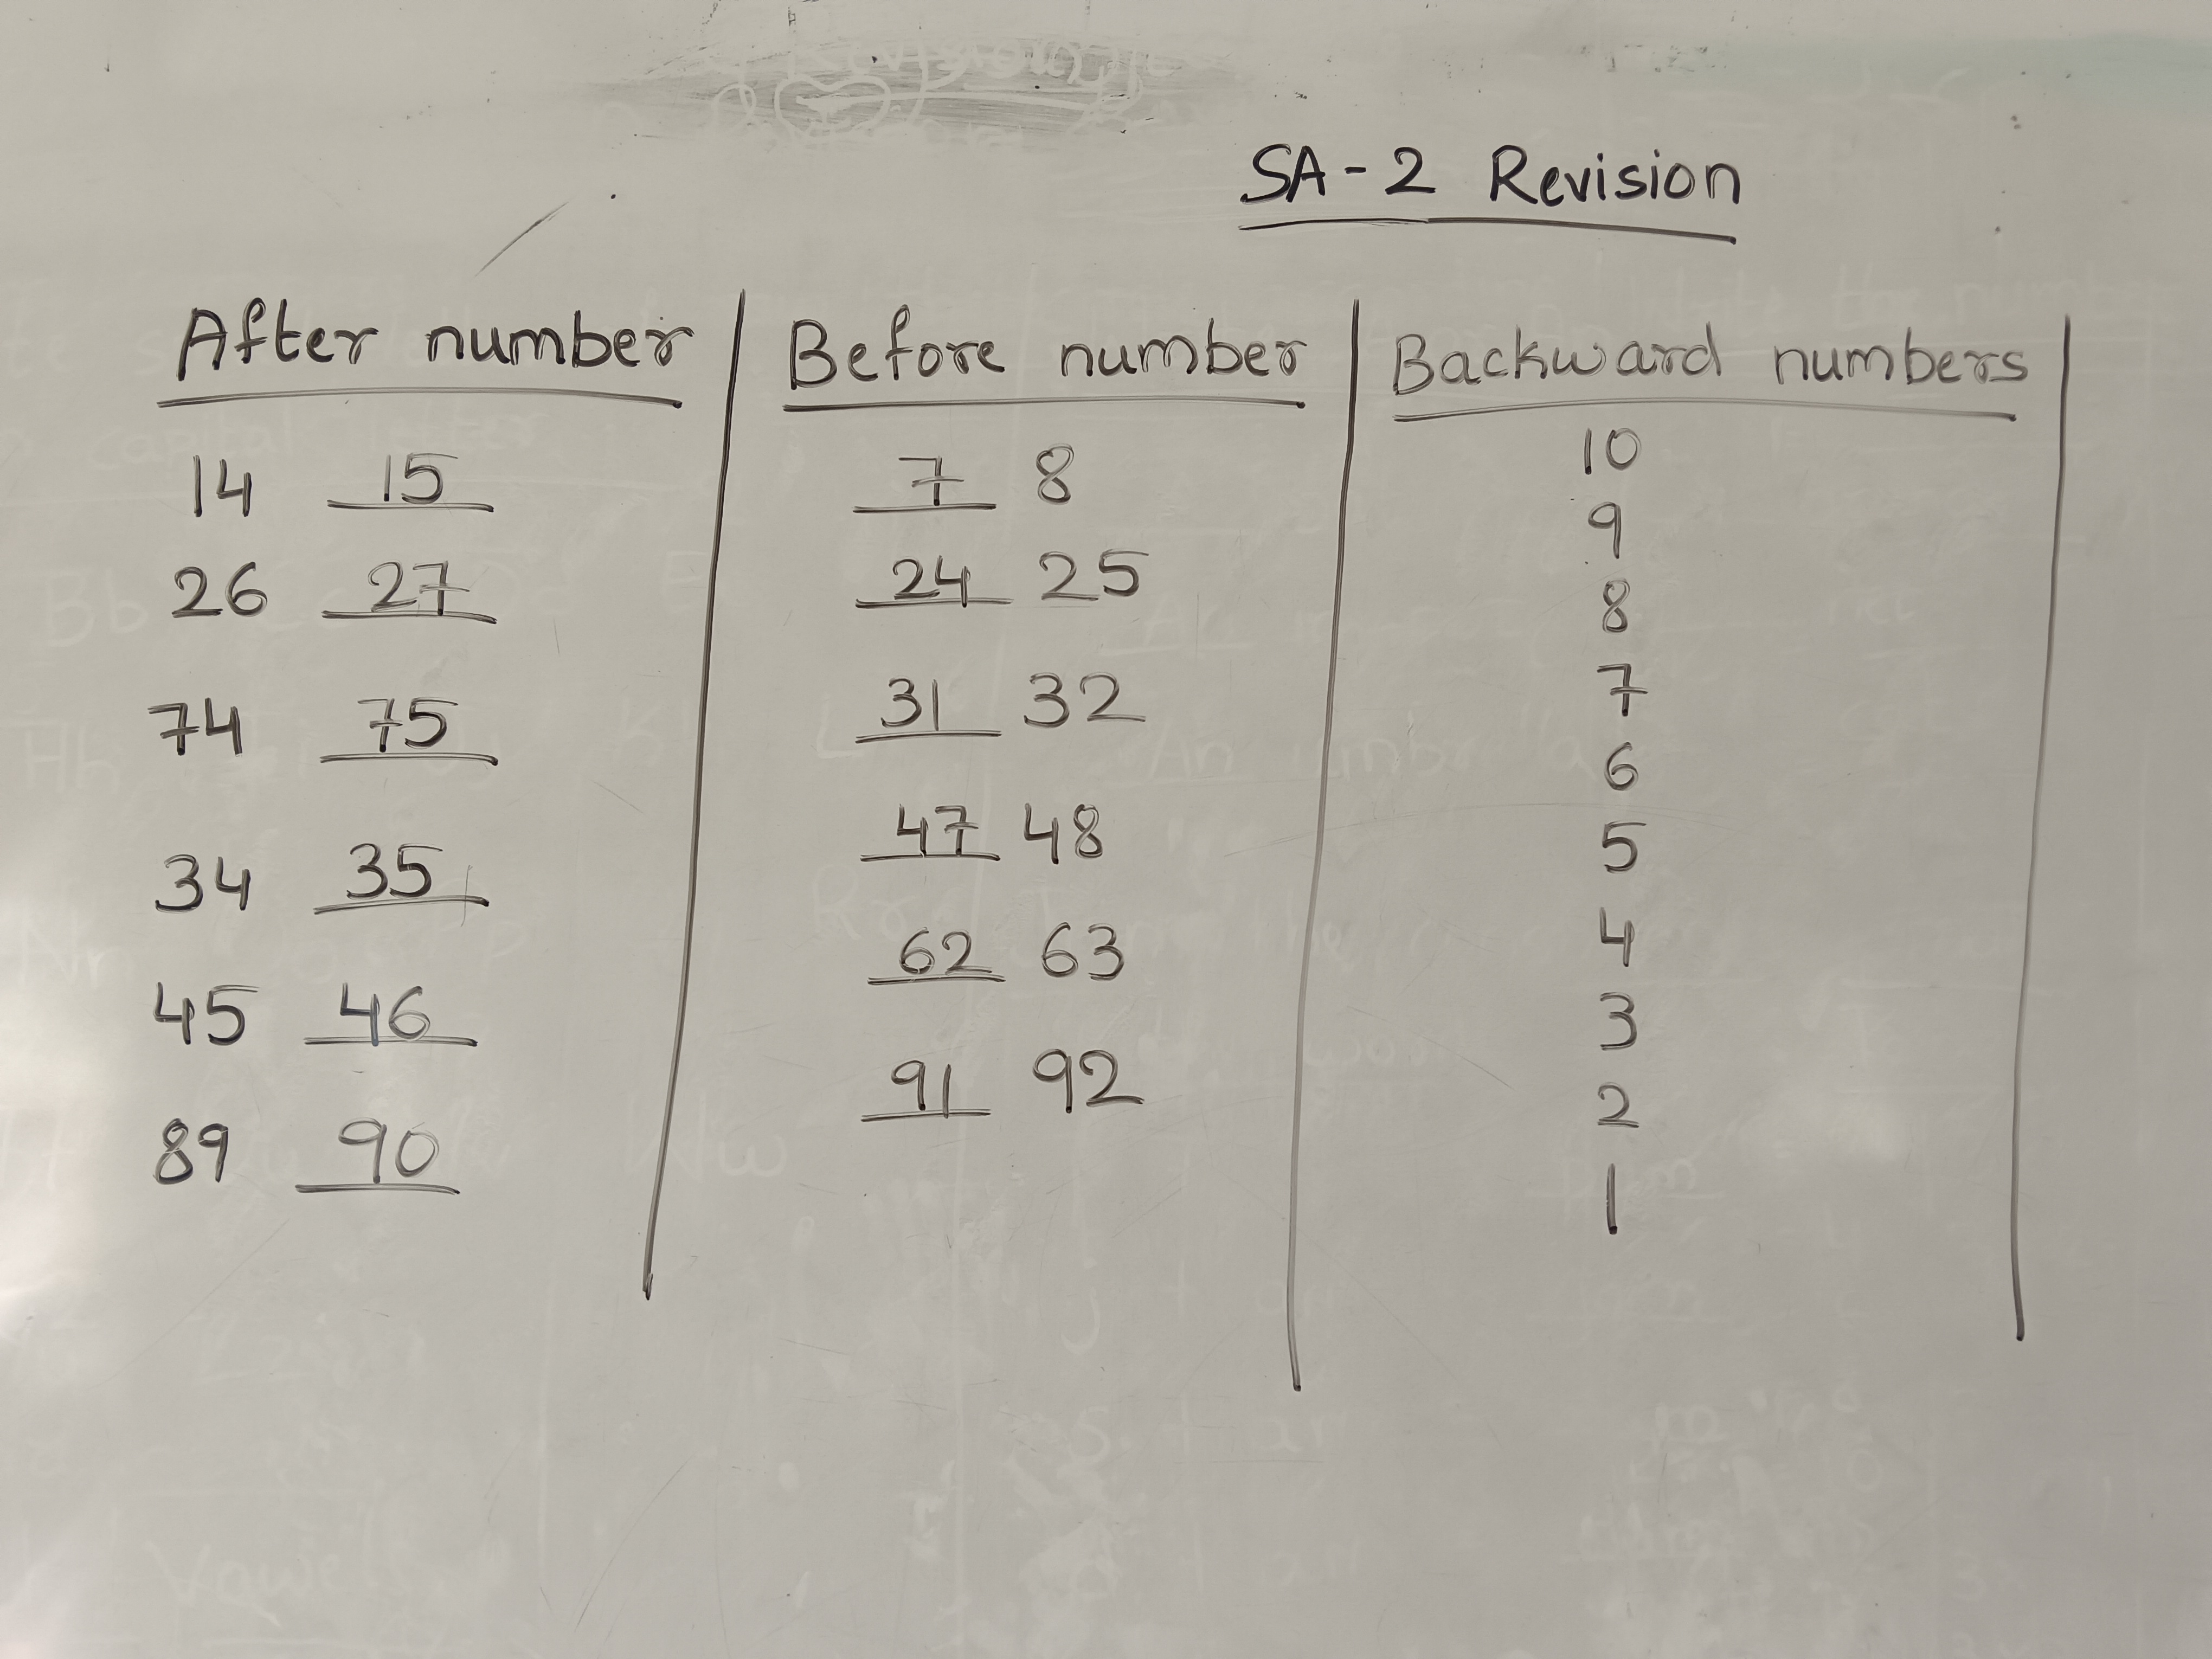 SA-2 Revision
After number
14 15
26 27
74 75
34 35
45 46
89 90
Before number
7 8
24 25
31 32
47 48
62 63
91 92
Backward numbers
10
9
8
7
6
5
4
3
2
1